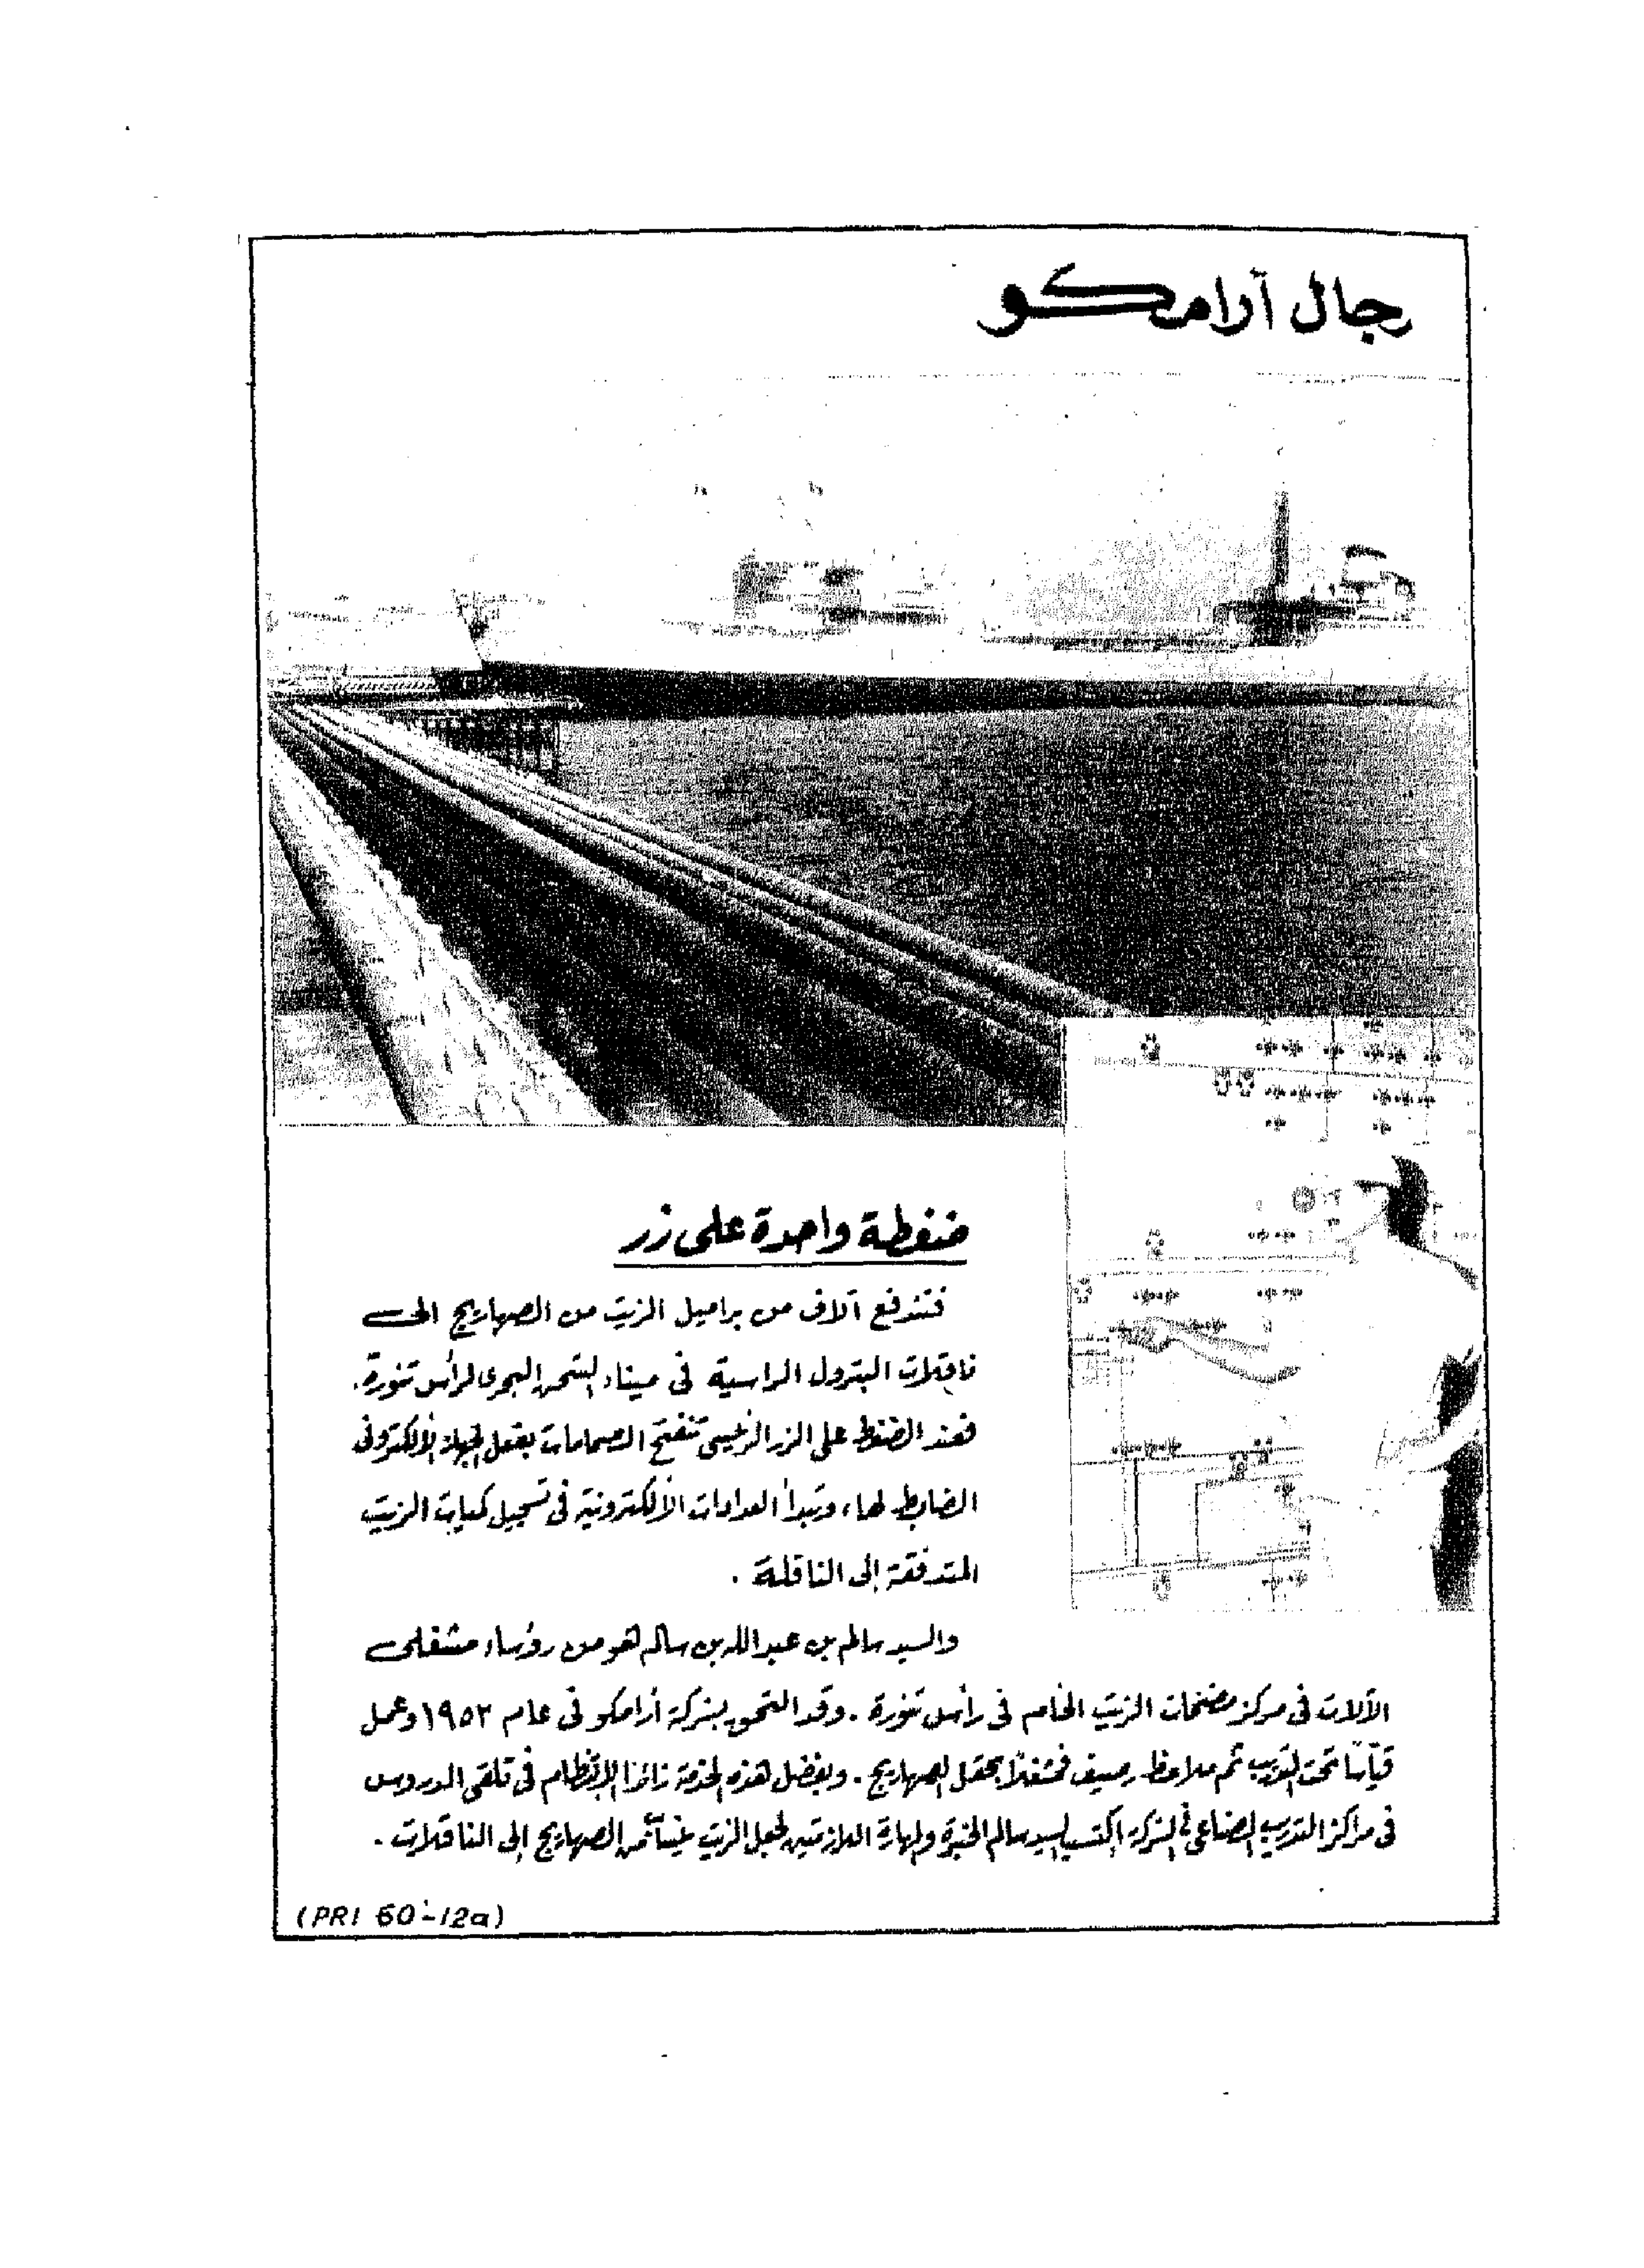 رجال آرامكو
ضغطة واحدة على زر
فتندفع آلاف من براميل الزيت من الصهاريج الى
ناقلات البترول الراسية فى ميناء الشحن البحرى لرأس تنورة.
فعند الضغط على الزر الرئيسى تنفتح الصمامات بفعل الجهاز الألكترونى
الضابط لها، وتبدأ العدادات الألكترونية فى تسجيل كميات الزيت
المتدفقة إلى الناقلة .
والسيد سالم بن عبد الله بن سالم هو من رؤساء مشغلى
الآلات فى مركز مضخات الزيت الخام فى رأس تنورة . وقد التحق بشركة أرامكو فى عام ١٩٥٣ وعمل
قيّاسًا تحت التدريب ثم ملاحظ رصيف فمشغلًا بحقل الصهاريج . وبفضل هذه الخدمة الانتظام فى تلقى الدروس
فى مراكز التدريب الصناعى فى الشركة اكتسب السيد سالم الخبرة والمهارة اللازمتين لجعل الزيت من الصهاريج إلى الناقلات .
(PRI 60-12a)